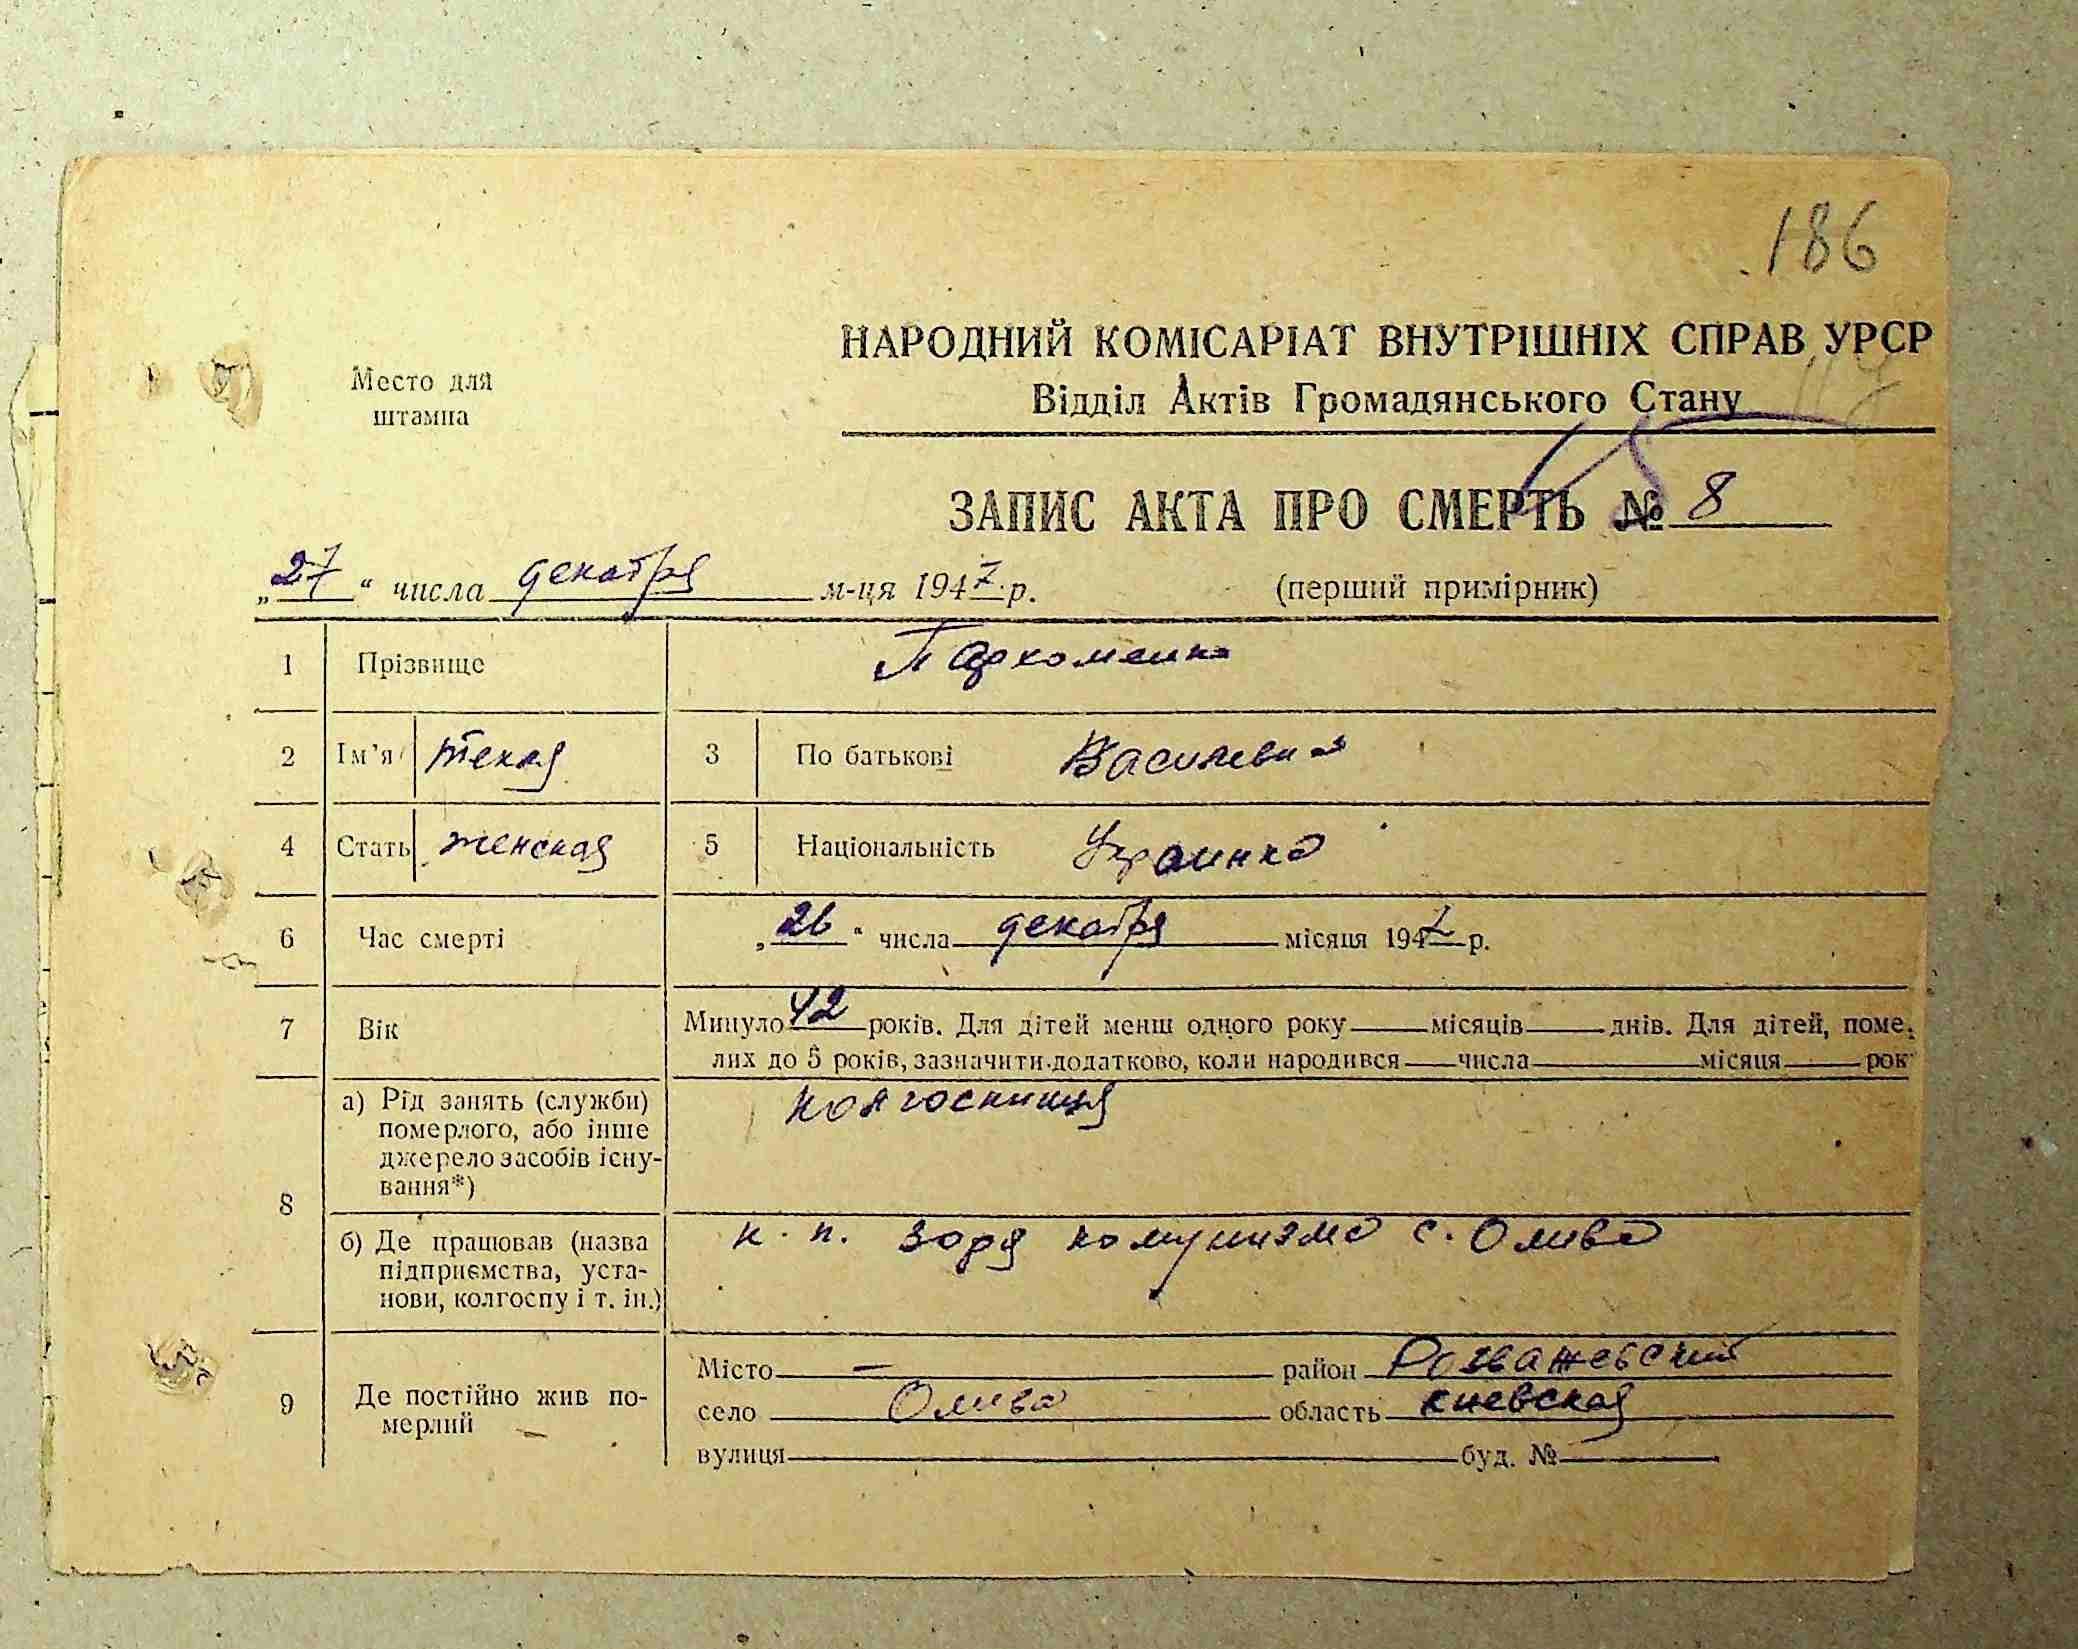 186
НАРОДНИЙ КОМІСАРІАТ ВНУТРІШНІХ СПРАВ УРСР
Место для
штампа
Відділ Актів Громадянського Стану
ЗАПИС АКТА ПРО СМЕРТЬ № 8
„27“ числа декабря м-ця 1947 р. (перший примірник)
1 Прізвище Пархоменко
2 Ім'я Текля 3 По батькові
4 Стать женская 5 Національність Украинка
6 Час смерті „26“ числа декабря місяця 1947 р.
7 Вік Минуло 42 років. Для дітей менш одного року місяців днів. Для дітей, поме-
лих до 5 років, зазначити додатково, коли народився числа місяця рок
8 а) Рід занять (служби) колгоспниця
померлого, або інше
джерело засобів існу-
вання*)
б) Де працював (назва к. п. зоря комунизма с. Олива
підприємства, уста-
нови, колгоспу і т. ін.)
9 Де постійно жив по-
мерлий
Місто — район Розважевский
село Олива область киевская
вулиця буд. №